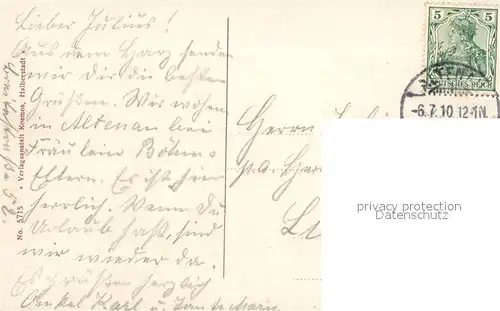 Lieber Julius!
Aus dem Harz senden
wir Dir die besten
Grüßen. Wir wohnen
in Altenau bei
Fräulein Böhms
Eltern. Es ist hier
herrlich. Wenn Du
Urlaub hast, sind
wir wieder da.
Es grüßen herzlich
Onkel Karl u. Tante Marie
No. 5715 • Verlagsanstalt Kosmos, Halberstadt •
5 5
DEUTSCHES REICH
-6.7.10.12-1N.
Herrn
Her
privacy protection
Datenschutz